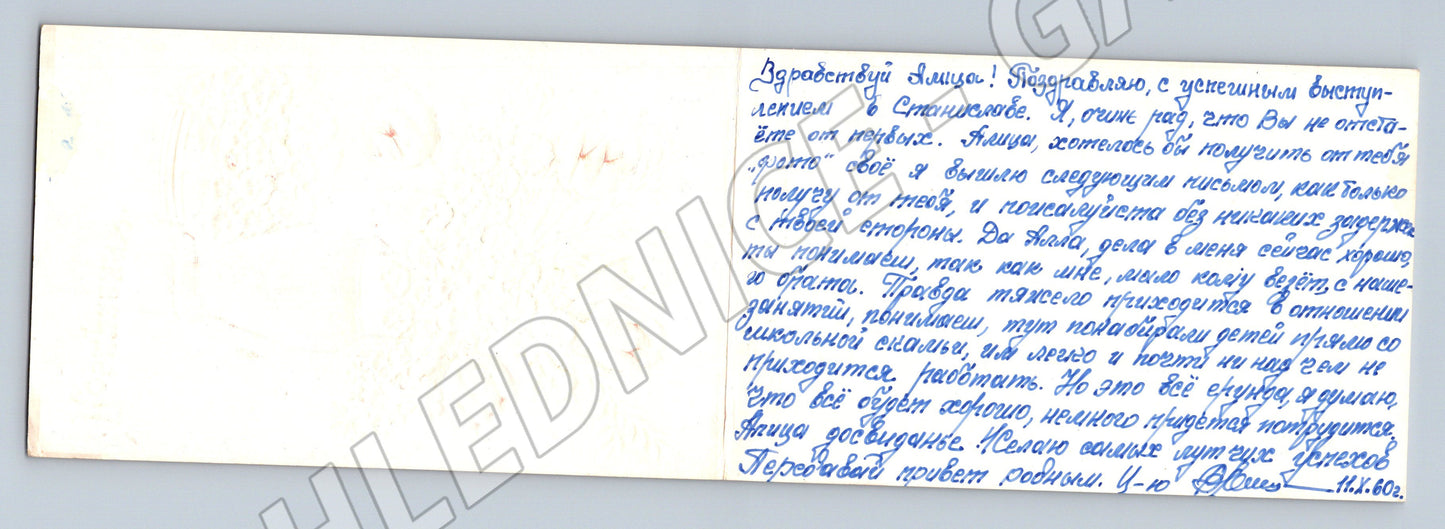 Здравствуй Алица! Поздравляю, с успешным выступ-
лением в Станиславе. Я, очинь рад, что Вы не отста-
ёте от первых. Алица, хотелось бы получить от тебя
„фото" своё я вышлю следующим письмом, как только
получу от тебя, и пожалуйста без никаких задержек
с твоей стороны. Да Алла, дела в меня сейчас хорошо,
ты понимаеш, так как мне, мало кому везёт, с наше-
го брата. Правда тяжело приходится в отношении
занятий, понимаеш, тут понабирали детей прямо со
школьной скамьи, им легко и почти ни над чем не
приходится работать. Но это всё ерунда, я думаю,
что всё будет хорошо, немного придётся потрудится.
Алица досвиданье. Желаю самых лутчих успехов
Передавай привет родным. Ц-ю 11.X.60г.
HLEDNICE - GA